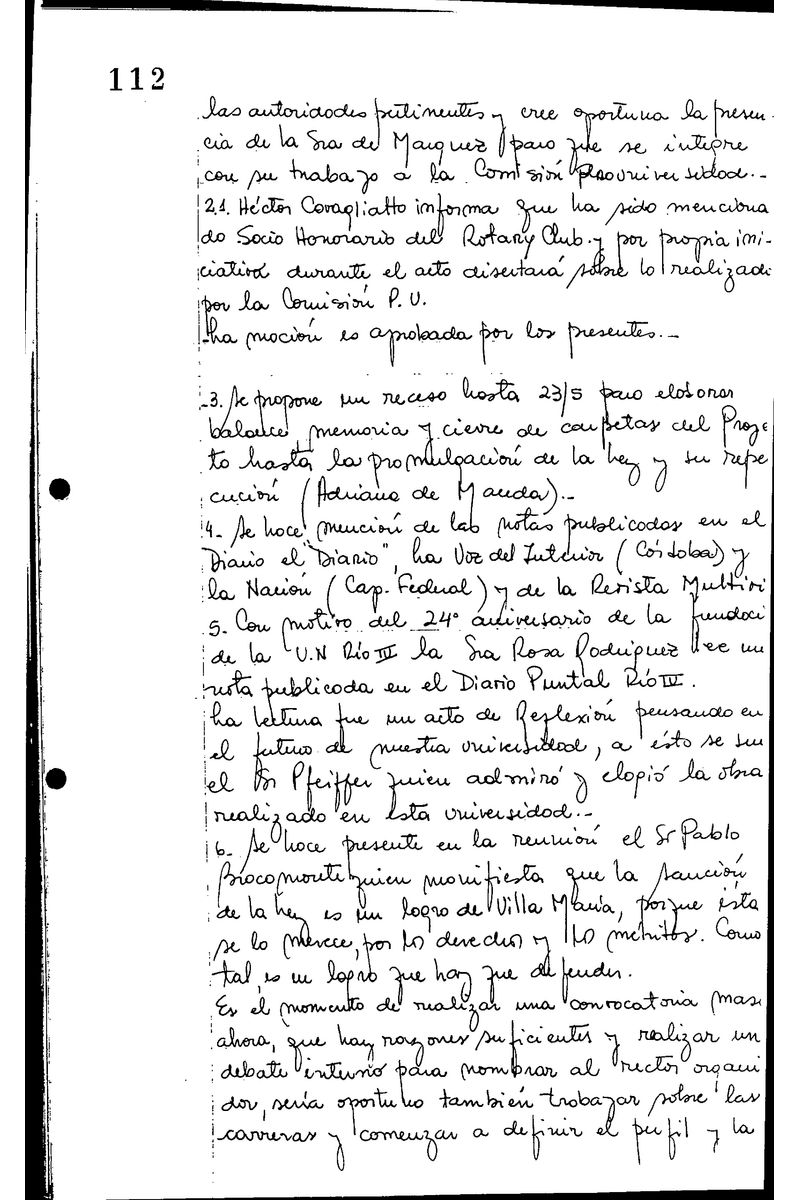 112
las autoridades pertinentes y cree oportuna la presen
cia de la Sra de Marquez para que se integre
con su trabajo a la Comisión Prouniversidad.-
2.1. Héctor Cavagliatto informa que ha sido menciona
do Socio Honorario del Rotary Club. y por propia ini-
ciativa durante el acto disertará sobre lo realizado
por la Comisión P. U.
La moción es aprobada por los presentes.-
3. Se propone un receso hasta 23/5 para elaborar
balance, memoria y cierre de carpetas del Proye
to hasta la promulgación de la Ley y su reper
cución (Adriana de Mauda).-
4- Se hace mención de las notas publicadas en el
Diario el "Diario", La Voz del Interior (Córdoba) y
la Nación (Cap. Federal) y de la Revista
5. Con motivo del 24° aniversario de la fundaci
de la U.N Río III la Sra Rosa Rodriguez lee un
nota publicada en el Diario Puntal Río IV.
La lectura fue un acto de Reflexión pensando en
el futuro de nuestra universidad, a ésto se su
el Sr Pfeiffer quien admiró y elogió la obra
realizado en esta universidad.-
6- Se hace presente en la reunión el Sr Pablo
quien manifiesta que la sanción
de la Ley es un logro de Villa María, porque ésta
se lo merece, por los derechos y los méritos. Como
tal, es un logro que hay que defender.
Es el momento de realizar una convocatoria mas
ahora, que hay razones suficientes y realizar un
debate interno para nombrar al rector organi
dor, sería oportuno también trabajar sobre las
carreras y comenzar a definir el perfil y la